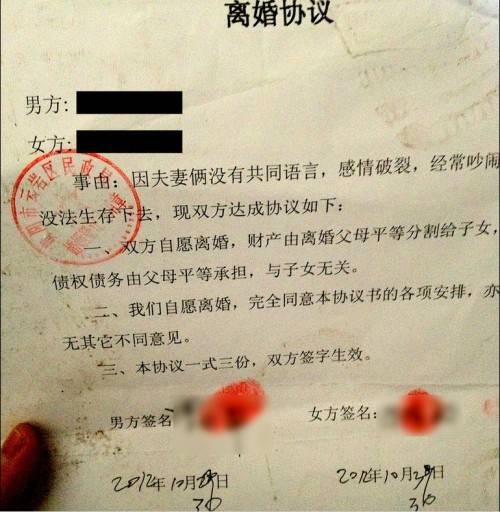 离婚协议
男方:
女方:
事由：因夫妻俩没有共同语言，感情破裂，经常吵闹
没法生存下去，现双方达成协议如下：
一、双方自愿离婚，财产由离婚父母平等分割给子女，
债权债务由父母平等承担，与子女无关。
二、我们自愿离婚，完全同意本协议书的各项安排，亦
无其它不同意见。
三、本协议一式三份，双方签字生效。
男方签名
女方签名：
2012年10月 日
30
2012年10月 日
30
云岩区民政局